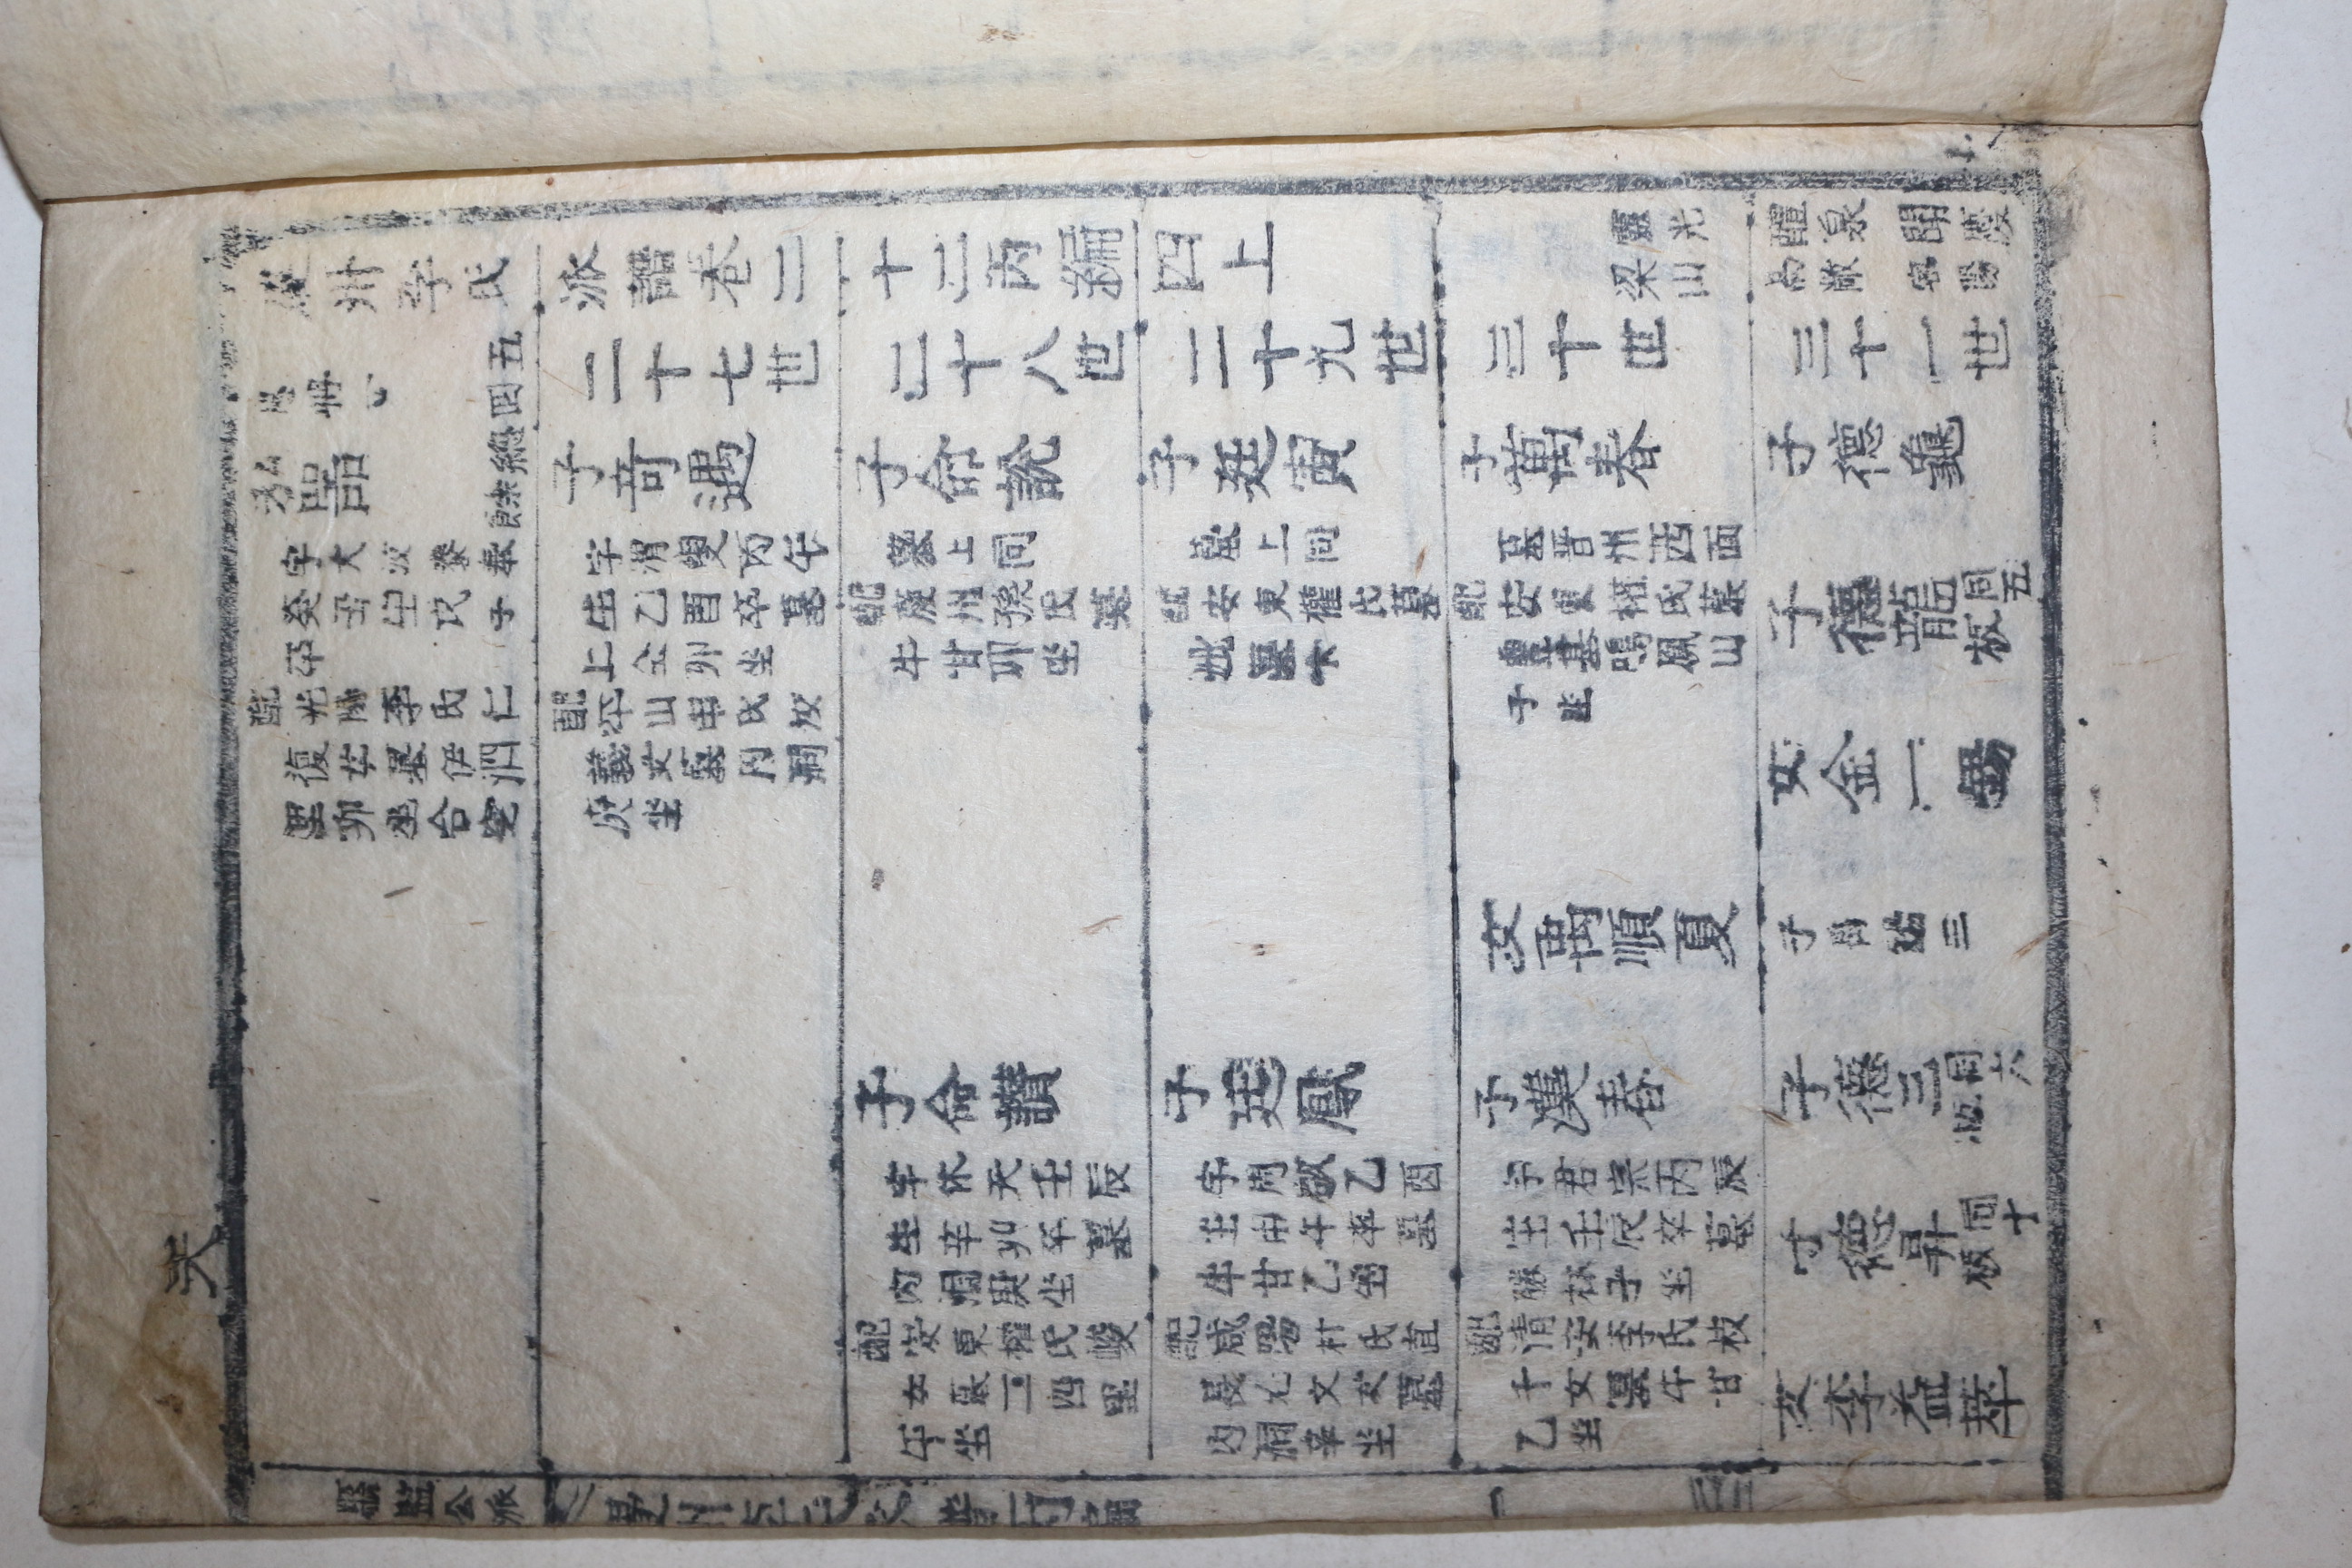 天
慶州李氏派譜卷二十二丙編四上
靈光
梁山
醴泉 聞慶
高敞
五
四
總
餘
二十七世
二十八世
二十九世
三十世
三十一世
弘器
字大汝參奉
癸丑生戊子
卒
配光陽李氏仁
復女墓伊泗
里卯坐合窆
子奇遇
字渭叟丙午
生乙酉卒墓
上仝卯坐
配平山申氏汝
義女墓內洞
庚坐
子命說
墓上同
配慶州孫氏墓
牛甘卯坐
子命讚
字休天壬辰
生辛卯卒墓
內洞巽坐
配安東權氏峻
女墓一四里
午坐
子廷寅
墓上同
配安東權氏墓
子廷鳳
字周敬乙酉
生甲午卒墓
牛甘乙坐
配咸陽朴氏直
長文女墓
內洞辛坐
子萬春
墓晋州西面
配安東權氏墓
靈基鳴鳳山
子坐
女禹順夏
子漢春
字君宗丙辰
生壬辰卒墓
勝林子坐
配清安李氏枝
千女墓牛甘
乙坐
子德龜
子德龍 同五
板
女金一錫
子德三 同六
板
子德昇 同十
板
女李益華
縣監公派